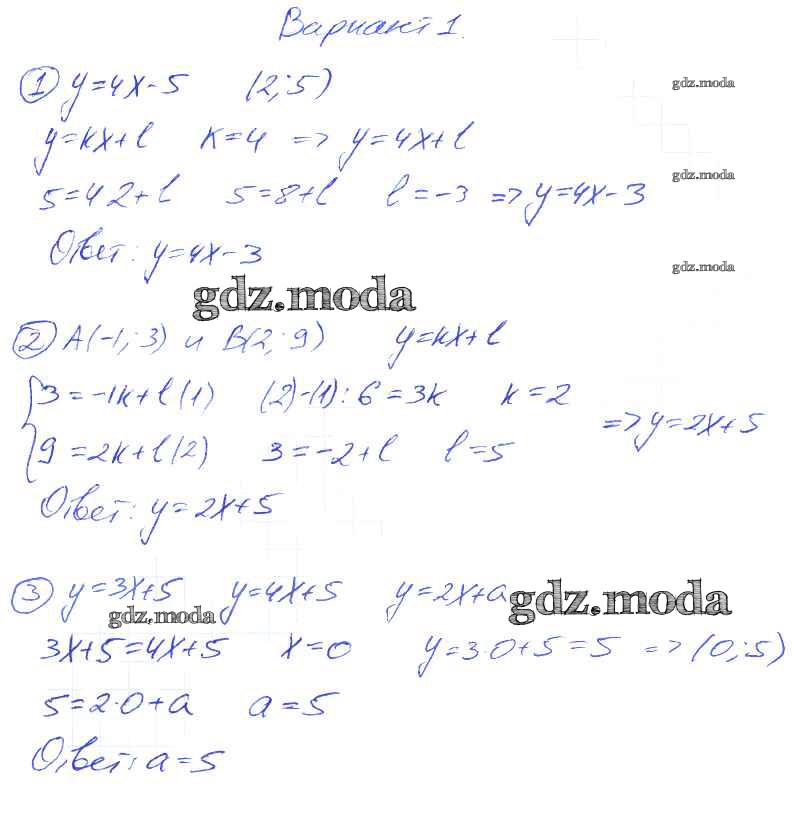 Вариант 1.
① y=4x-5 (2;5)
gdz.moda
y=kx+l k=4 => y=4x+l
gdz.moda
5=4·2+l 5=8+l l=-3 => y=4x-3
Ответ: y=4x-3
gdz.moda
gdz.moda
② A(-1;3) и B(2;9) y=kx+l
{3=-1k+l (1) (2)-(1): 6=3k k=2
=> y=2x+5
9=2k+l (2) 3=-2+l l=5
Ответ: y=2x+5
③ y=3x+5 y=4x+5 y=2x+a
gdz.moda
gdz.moda
3x+5=4x+5 x=0 y=3·0+5=5 => (0;5)
5=2·0+a a=5
Ответ: a=5